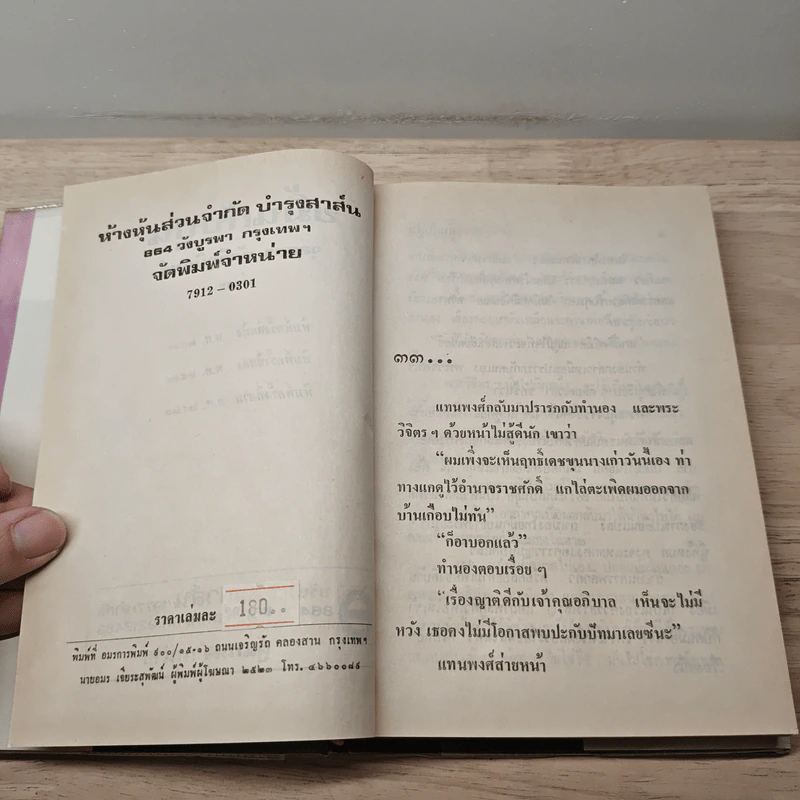 ห้างหุ้นส่วนจำกัด บำรุงสาส์น
864 วังบูรพา กรุงเทพฯ
จัดพิมพ์จำหน่าย
7912 – 0301
ราคาเล่มละ 180..
พิมพ์ที่ อมรการพิมพ์ ๙๐๐/๑๕-๑๖ ถนนเจริญรัถ คลองสาน กรุงเทพฯ
นายอมร เจียระสุพัฒน์ ผู้พิมพ์ผู้โฆษณา ๒๕๒๓ โทร. ๔๖๖๐๐๘๙
๓๓...
แทนพงศ์กลับมาปรารภกับทำนอง และพระ
วิจิตร ๆ ด้วยหน้าไม่สู้ดีนัก เขาว่า
“ผมเพิ่งจะเห็นฤทธิ์เดชขุนนางเก่าวันนี้เอง ท่า
ทางแกดูไว้อำนาจราชศักดิ์ แกไล่ตะเพิดผมออกจาก
บ้านเกือบไม่ทัน”
“ก็อาบอกแล้ว”
ทำนองตอบเรื่อย ๆ
“เรื่องญาติดีกับเจ้าคุณอภิบาล เห็นจะไม่มี
หวัง เธอคงไม่มีโอกาสพบปะกับปัทมาเลยซีนะ”
แทนพงศ์ส่ายหน้า